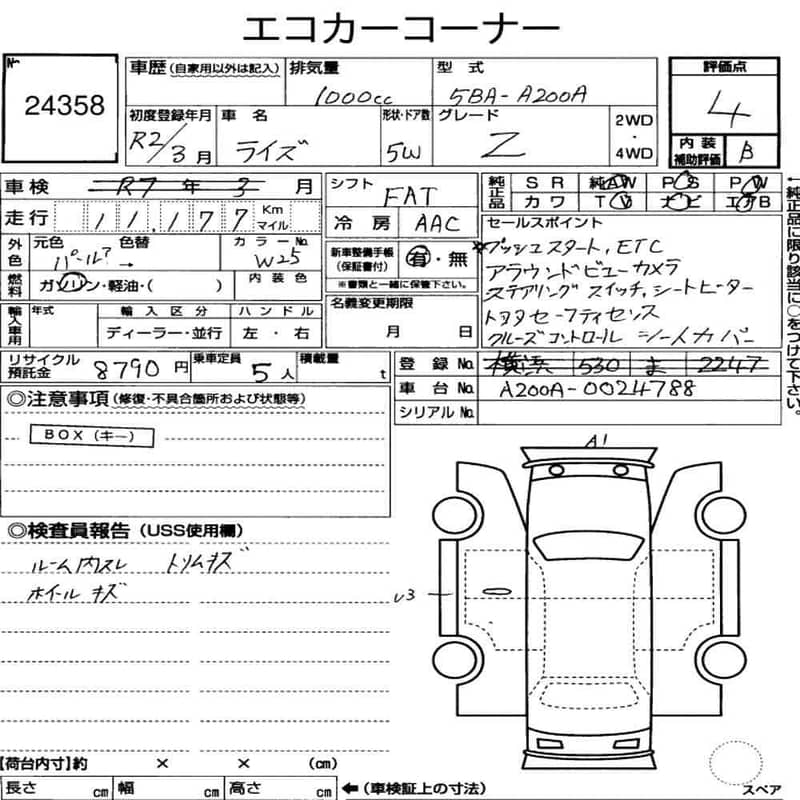 エコカーコーナー
No.
24358
車歴(自家用以外は記入) 排気量 1000cc 型式 5BA-A200A 評価点 4
初度登録年月 R2/3月 車名 ライズ 形状・ドア数 5W グレード Z 2WD・4WD 内装補助評価 B
車検 R7年3月 シフト FAT 純正品 SR 純AW PS PW
走行 11,177 Km マイル 冷房 AAC カワ TV ナビ エアB
外色 元色 パール 色替 → カラーNo. W25 新車整備手帳(保証書付) 有・無 ※書類と一緒に保管下さい。
燃料 ガソリン・軽油・( ) 内装色
輸入車用 年式 輸入区分 ディーラー・並行 ハンドル 左・右 名義変更期限 月 日
セールスポイント
プッシュスタート, ETC
アラウンドビューカメラ
ステアリングスイッチ, シートヒーター
トヨタセーフティセンス
クルーズコントロール シートカバー
←純正品に限り該当に○をつけて下さい。
リサイクル預託金 8790円 乗車定員 5人 積載量 t 登録No. 横浜 530 ま 2247
車台No. A200A-0024788
シリアルNo.
◎注意事項(修復・不具合箇所および状態等)
BOX(キー)
A1
◎検査員報告(USS使用欄)
ルーム内スレ トリムキズ
ホイールキズ
U3
【荷台内寸】約 × × (cm)
長さ cm 幅 cm 高さ cm ←(車検証上の寸法)
スペア